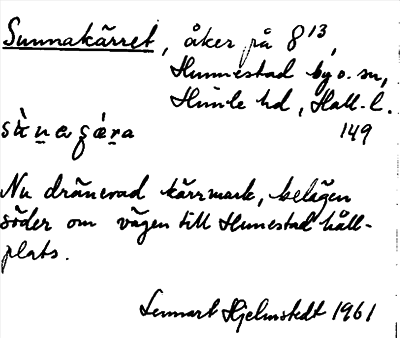 Sunnakärret, åker på 8¹³,
Hunnestad by o. sn,
Himle hd, Hall. l.
149
Nu dränerad kärrmark, belägen
söder om vägen till Hunnestad håll-
plats.
Lennart Hjelmstedt 1961